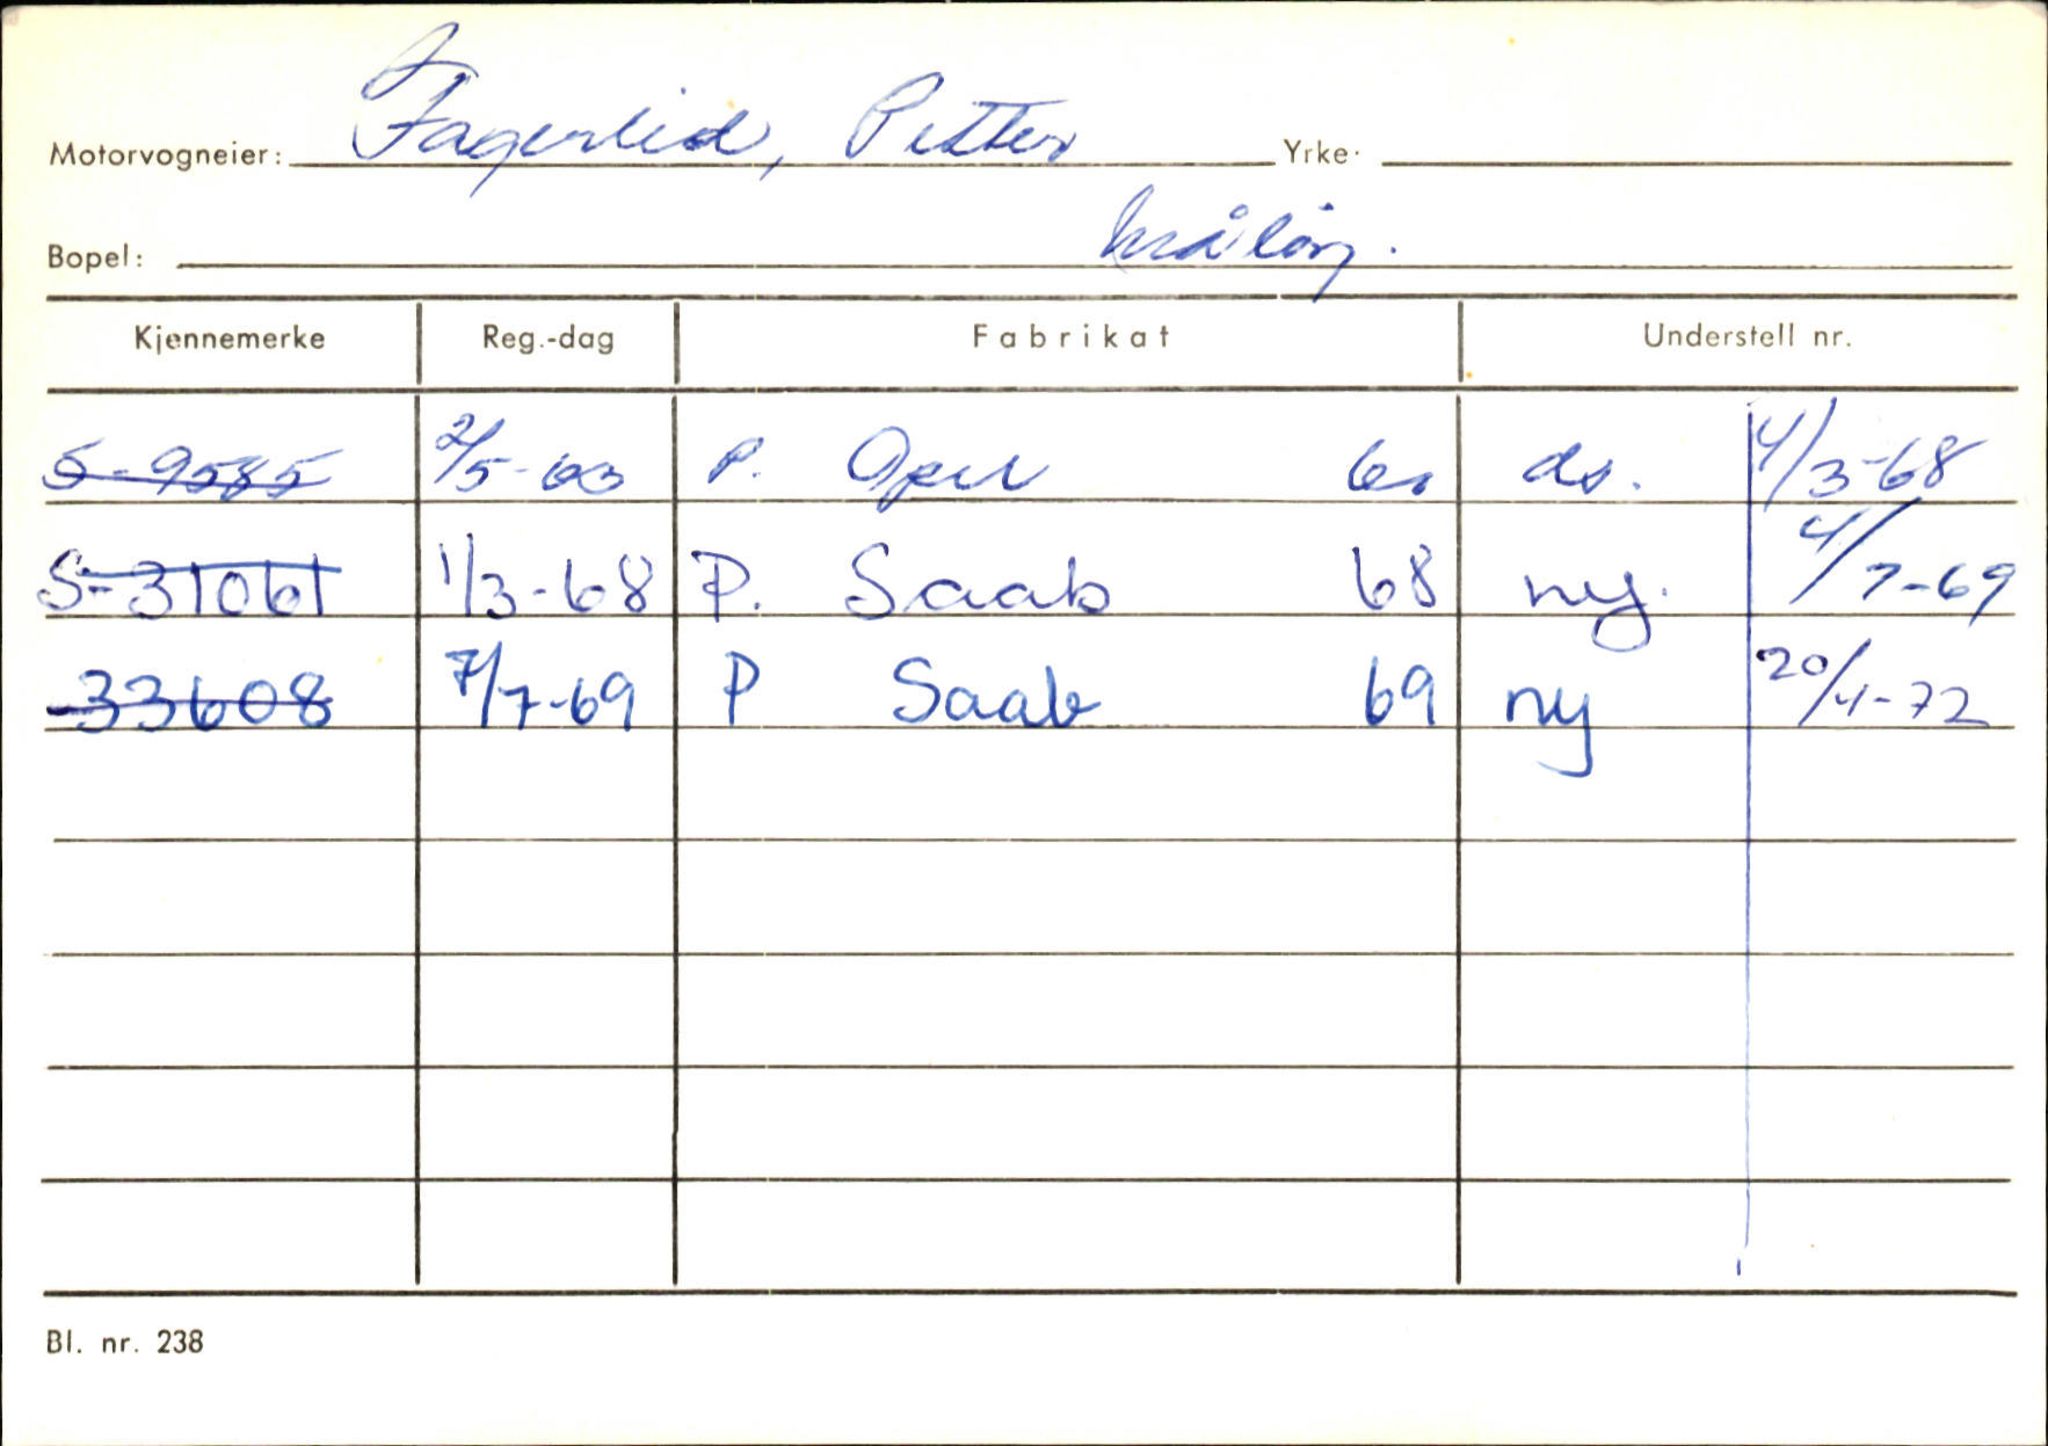 Motorvogneier: Fagerlid, Petter Yrke:
Bopel: Måløy.
Kjennemerke Reg.-dag Fabrikat Understell nr.
S-9585 2/5-63 P. Opel ds. 4/3-68
S-31061 1/3-68 P. Saab 68 ny. 4/7-69
-33608 7/7-69 P Saab 69 ny 20/4-72
Bl. nr. 238